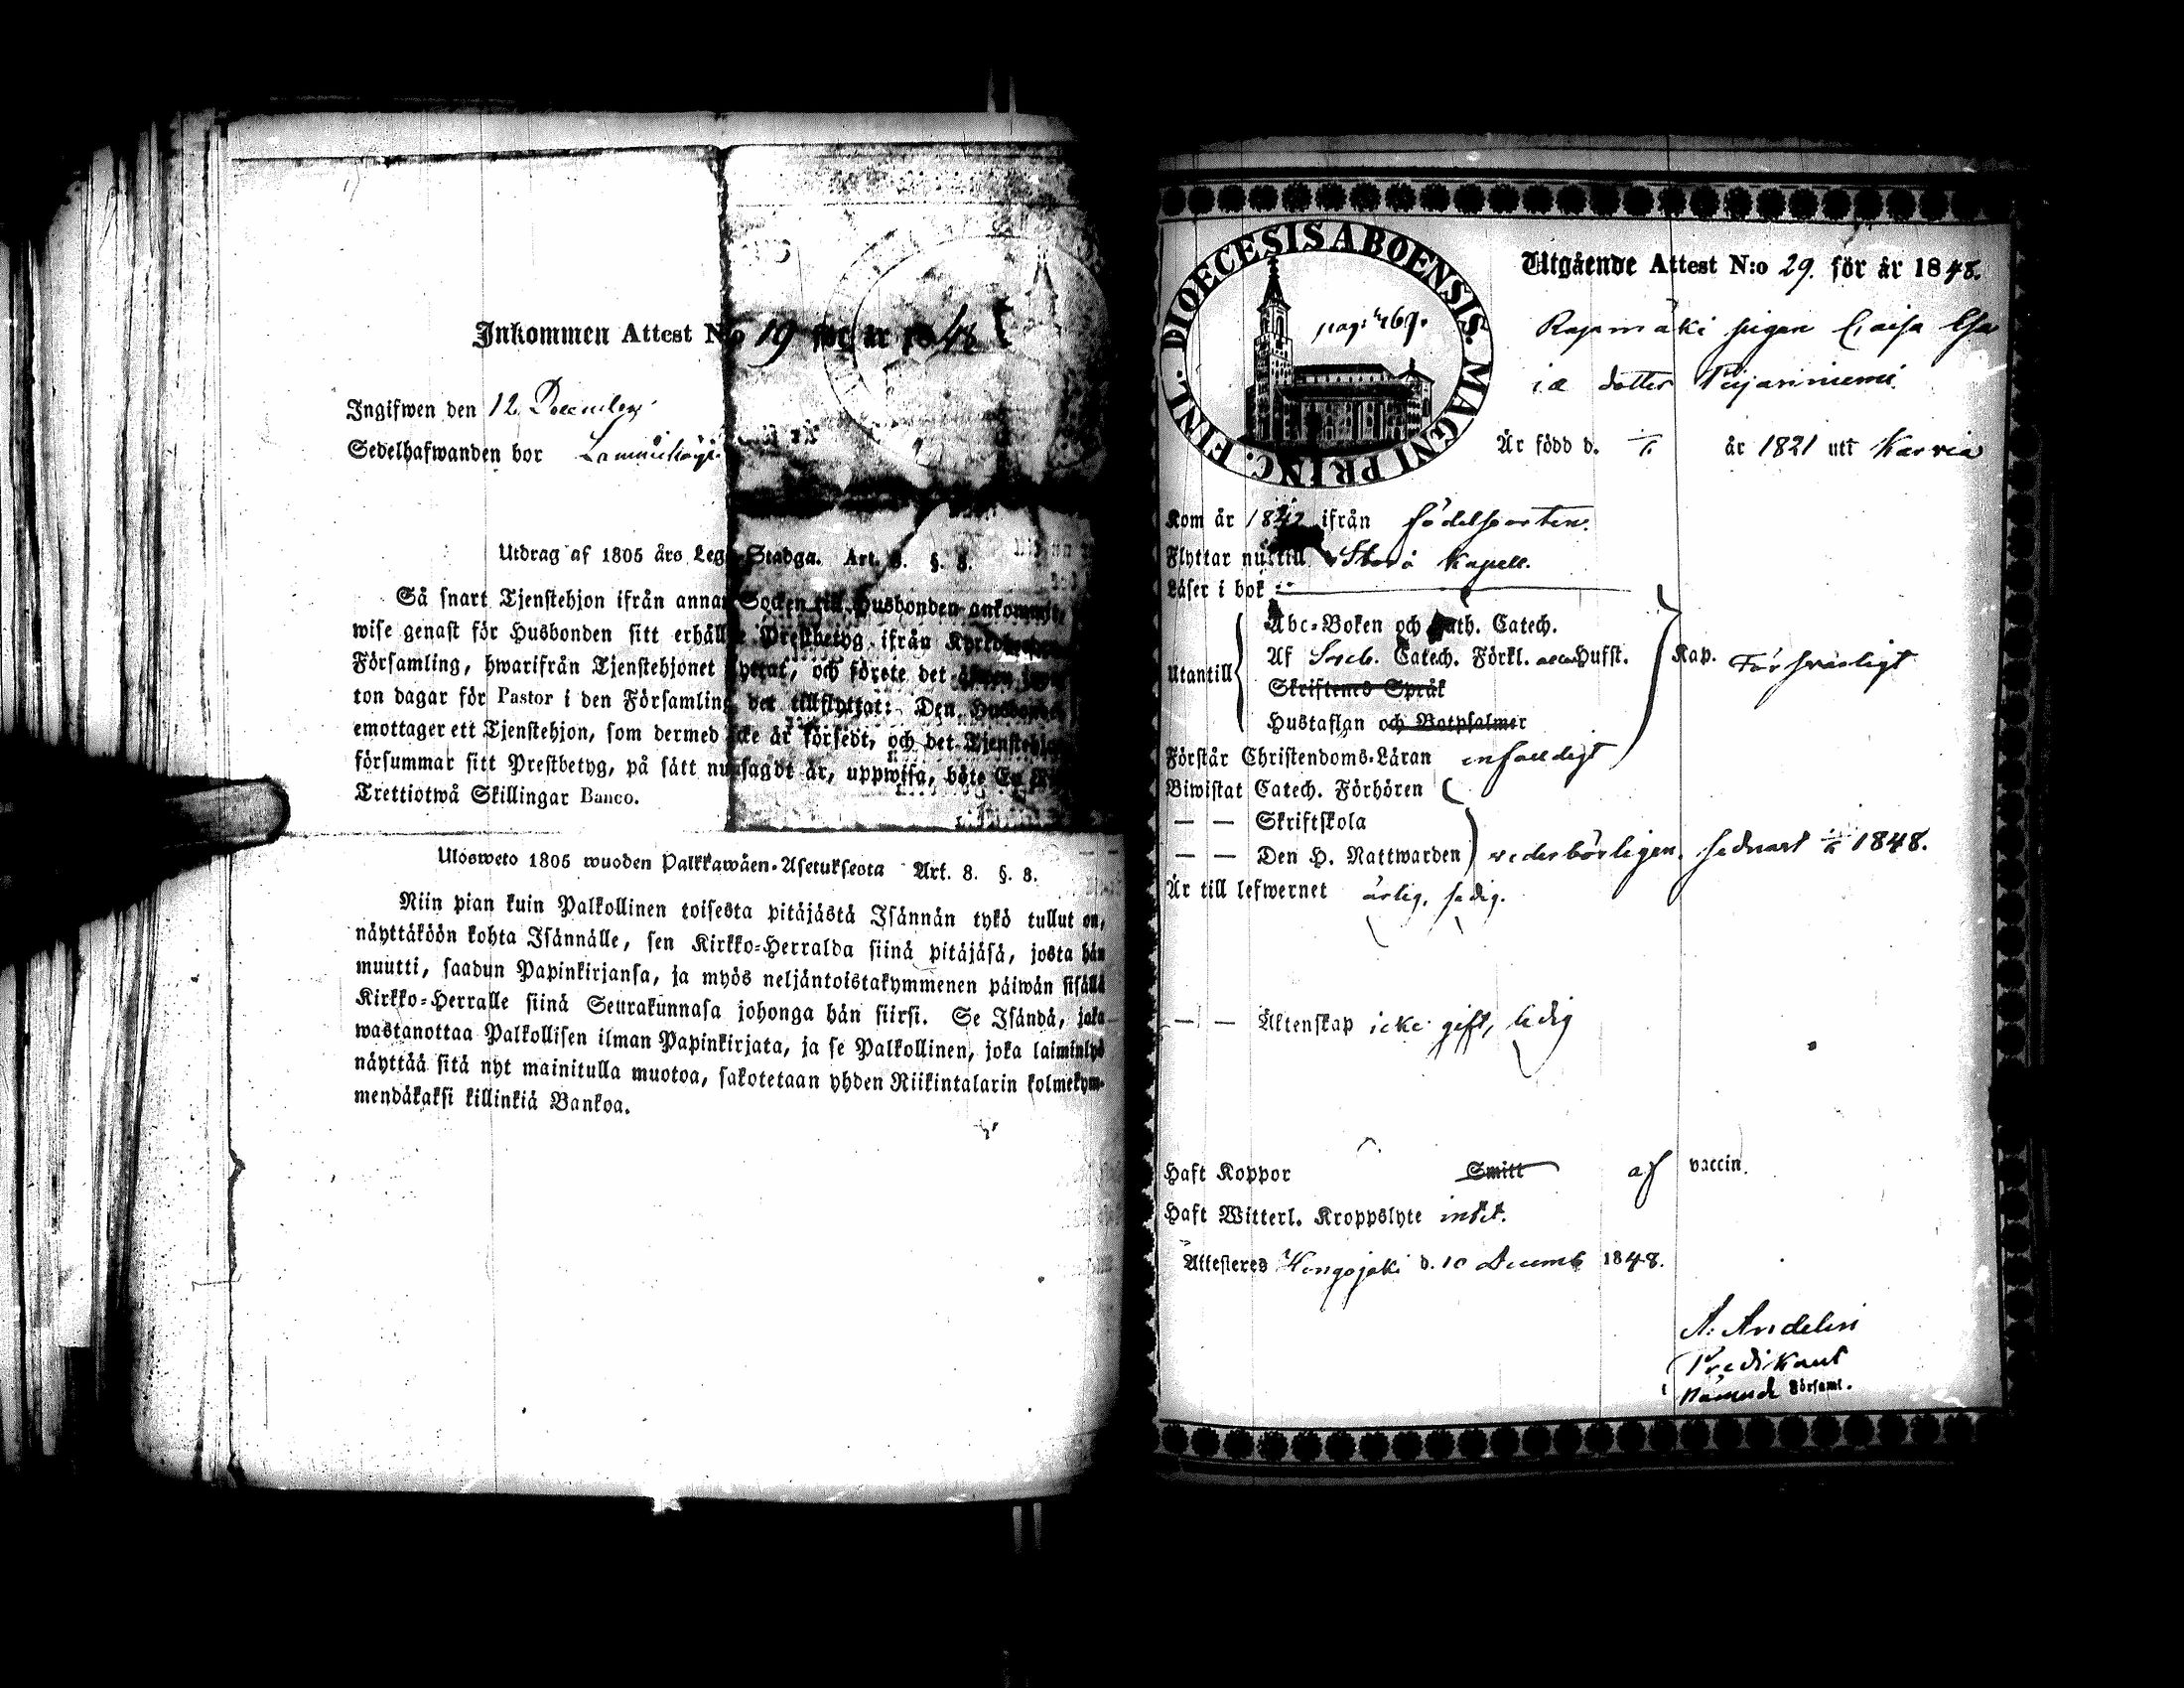 Inkommen Attest N:o 19 för år 1848
Ingifwen den 12 December
Sedelhafwanden bor
Utdrag af 1805 års Lego-Stadga. Art. 8. §. 8.
Så snart Tjenstehjon ifrån annan Socken till Husbonden ankommit,
wise genast för Husbonden sitt erhållne Prestbetyg ifrån
Församling, hwarifrån Tjenstehjonet och förete det
ton dagar för Pastor i den Församling det tillflyttat: Den Husbonde
emottager ett Tjenstehjon, som dermed icke är försedt, och det Tjenstehjon
försummar sitt Prestbetyg, på sätt nu sagdt är, uppwisa, böte En
Trettiotwå Skillingar Banco.
Ulosweto 1805 wuoden Palkkawäen-Asetuksesta Art. 8. §. 8.
Niin pian kuin Palkollinen toisesta pitäjästä Isännän tykö tullut on,
näyttäköön kohta Isännälle, sen Kirkko-Herralda siinä pitäjäsä, josta hän
muutti, saadun Papinkirjansa, ja myös neljäntoistakymmenen päiwän sisällä
Kirkko-Herralle siinä Seurakunnasa johonga hän siirsi. Se Isändä, joka
wastanottaa Palkollisen ilman Papinkirjata, ja se Palkollinen, joka laiminlyö
näyttää sitä nyt mainitulla muotoa, sakotetaan yhden Riikintalarin kolmekym-
mendäkaksi killinkiä Bankoa.
DIOECESIS ABOENSIS. MAGNI PRINC. FINL.
pag: 469.
Utgående Attest N:o 29. för år 1848.
Rajamäki pigan Caisa Esa
ia dotter
Är född d. år 1821 utt Karvia
Kom år 1842 ifrån födelseorten.
Flyttar nu till Storå Kapell.
Läser i bok
Abc-Boken och Luth. Catech.
Af Sveb. Catech. Förkl. Hufst.
Utantill
Skriftenes Språk
Hustaflan och Botpsalmer
Kap. Försvarligt
Förstår Christendoms-Läran enfaldigt
Biwistat Catech. Förhören
— — Skriftskola
— — Den H. Nattwarden vederbörligen, sednast 1848.
Är till lefwernet ärlig, sedig.
— — Äktenskap icke gift, ledig
Haft Koppor Smitt af vaccin.
Haft Witterl. Kroppslyte intet.
Attesteres Hongojoki d. 10 Decemb 1848.
A. Andelin
Predikant
i nämnde Församl.